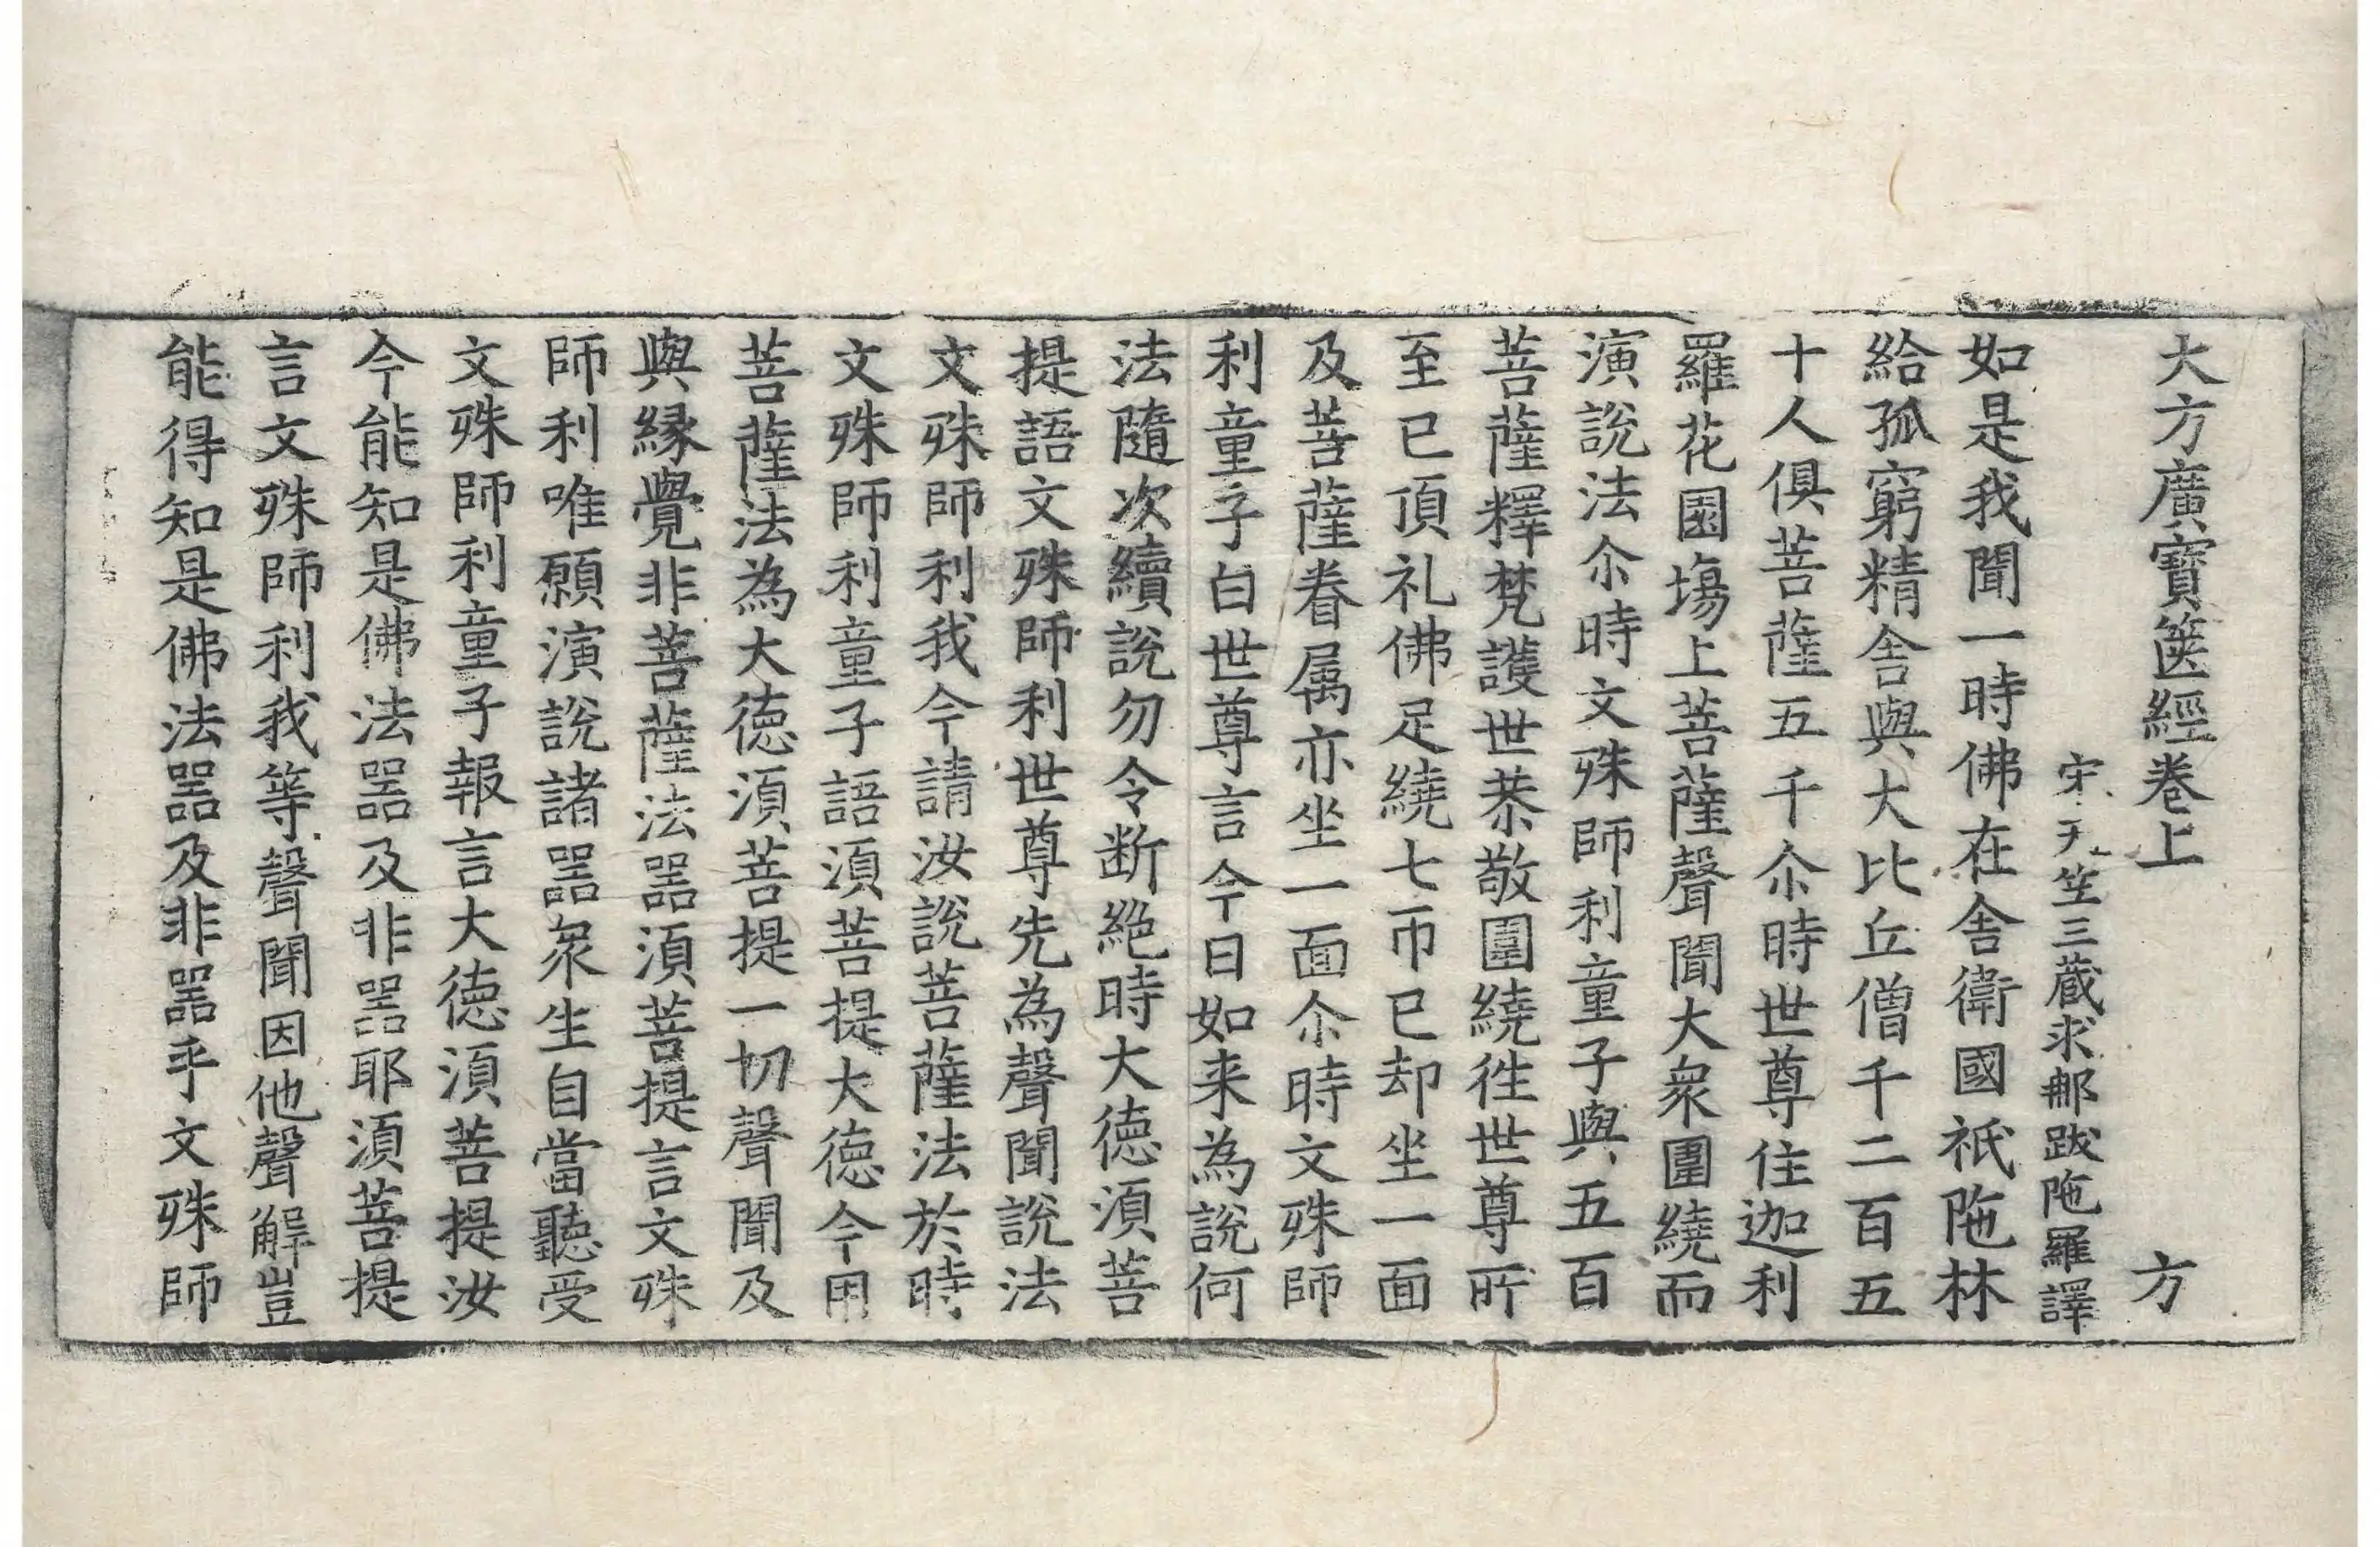 大方廣寶篋經卷上 方
宋天笁三蔵求郍跋陁羅譯
如是我聞一時佛在舍衛國祇陁林
給孤窮精舍與大比丘僧千二百五
十人俱菩薩五千尒時世尊住迦利
羅花園塲上菩薩聲聞大衆圍繞而
演說法尒時文殊師利童子與五百
菩薩釋梵護世恭敬圍繞徃世尊所
至已頂礼佛足繞七帀已却坐一面
及菩薩眷属亦坐一面尒時文殊師
利童子白世尊言今日如来為說何
法隨次續說勿令断絶時大德湏菩
提語文殊師利世尊先為聲聞說法
文殊師利我今請汝說菩薩法於時
文殊師利童子語湏菩提大德今用
菩薩法為大德湏菩提一切聲聞及
與縁覺非菩薩法噐湏菩提言文殊
師利唯願演說諸噐衆生自當聽受
文殊師利童子報言大德湏菩提汝
今能知是佛法噐及非噐耶湏菩提
言文殊師利我等聲聞因他聲解豈
能得知是佛法噐及非噐乎文殊師